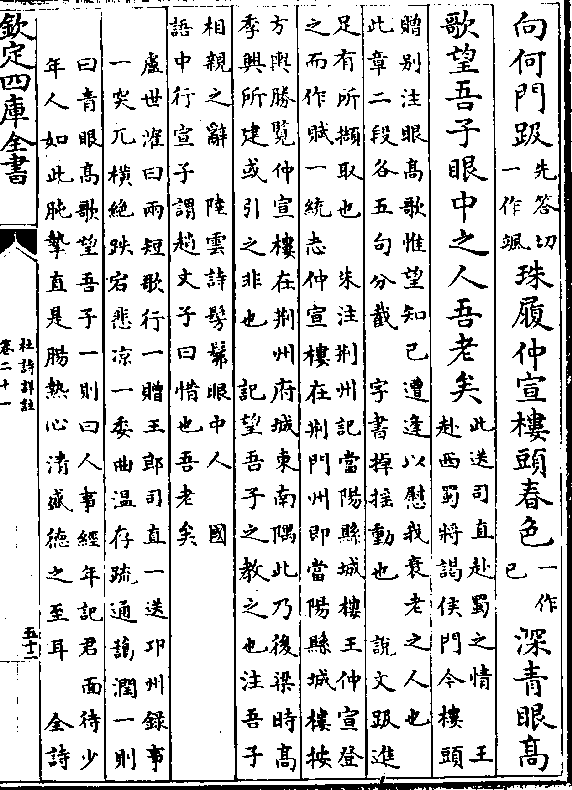 向何門趿先答切一作颯珠履仲宣樓頭春色一作已深青眼高
歌望吾子眼中之人吾老矣此送司直赴蜀之情 王
赴西蜀將謁侯門今樓頭
贈别注眼高歌惟望知已遭逢以慰我衰老之人也
此章二段各五句分截 字書掉摇動也 說文趿進
足有所擷取也 朱注荆州記當陽縣城樓王仲宣登
之而作賦一統志仲宣樓在荆門州即當陽縣城樓按
方輿勝覽仲宣樓在荆州府城東南隅此乃後梁時高
季興所建或引之非也 記望吾子之教之也注吾子
相親之辭 陸雲詩髣髴眼中人 國
語中行宣子謂趙文子曰惜也吾老矣
盧世㴶曰兩短歌行一贈王郎司直一送邛州錄事
一突兀横絶跌宕悲凉一委曲温存疏通藹潤一則
曰青眼高歌望吾子一則曰人事經年記君面待少
年人如此肫摯直是腸熱心清盛德之至耳 全詩
欽定四庫全書
杜詩詳註
卷二十一
五十二